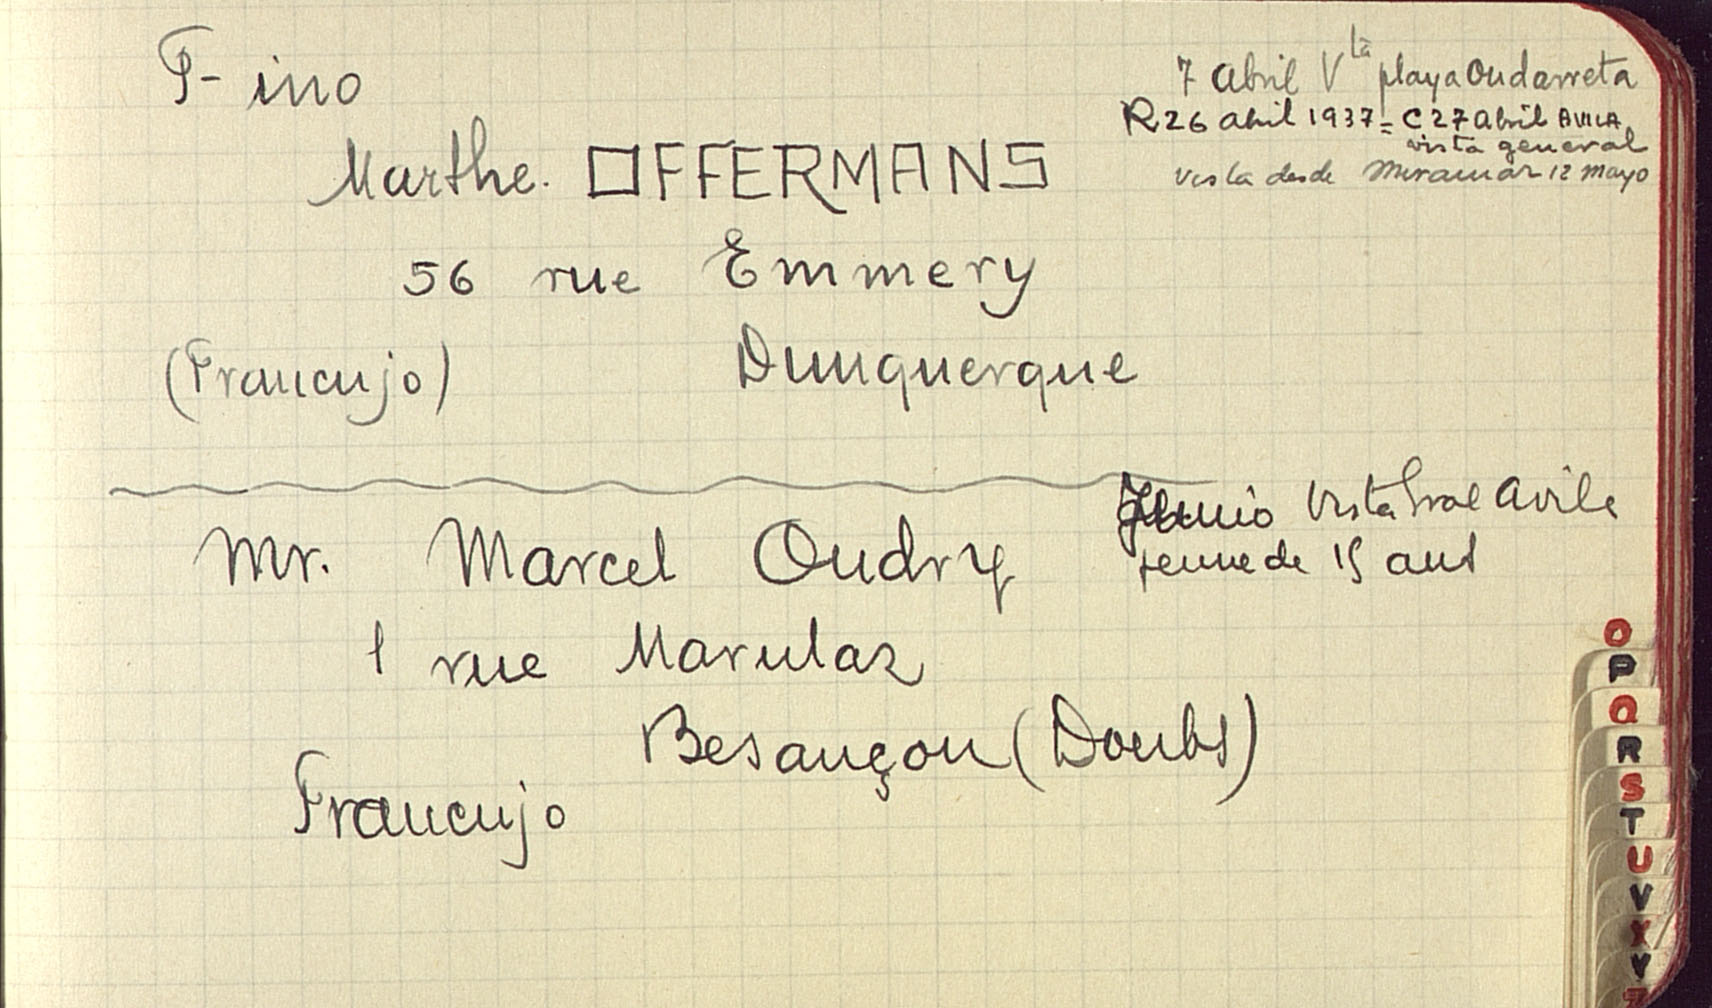 F-ino
7 abril Vta playa Ondarreta
R 26 abril 1937 = C 27 abril AVILA
vista general
Marthe. OFFERMANS
vista desde Miramar 12 mayo
56 rue Emmery
(Francujo) Dunquerque
Junio Vista Gral Avila
Mr. Marcel Oudry
jeune de 15 ans
1 rue Marulaz
Besançon (Doubs)
Francujo
O
P
Q
R
S
T
U
V
X
Y
Z